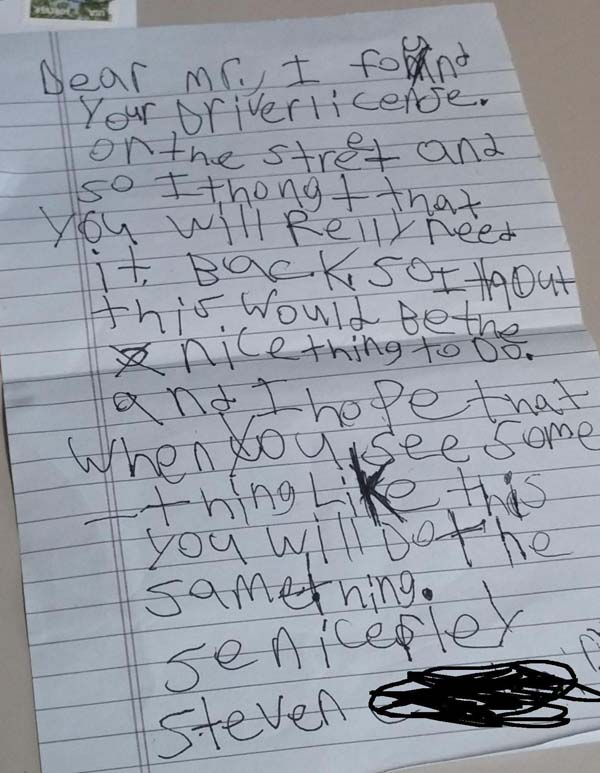 Dear mr., I found
Your Driver license.
on the street and
so I thongt that
you will Relly need
it. Back. so I thout
this would Be the
nice thing to Do.
and I hope that
when you see some
-thing Like this
you will Do the
same thing.
senicerley
steven